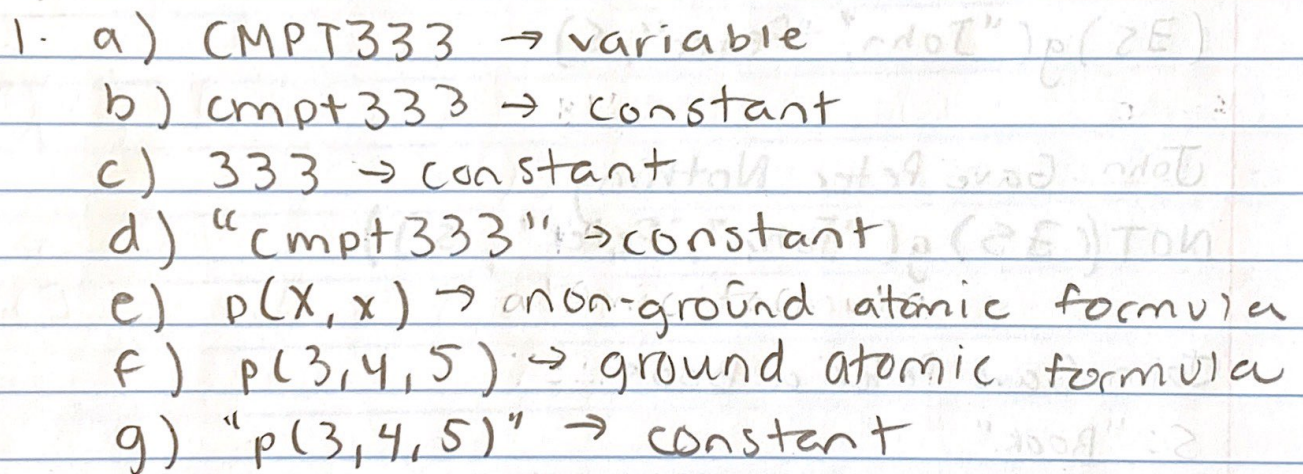 1. a) CMPT333 → variable
b) cmpt333 → constant
c) 333 → constant
d) "cmpt333" → constant
e) p(X, x) → a non-ground atomic formula
f) p(3,4,5) → ground atomic formula
g) "p(3,4,5)" → constant